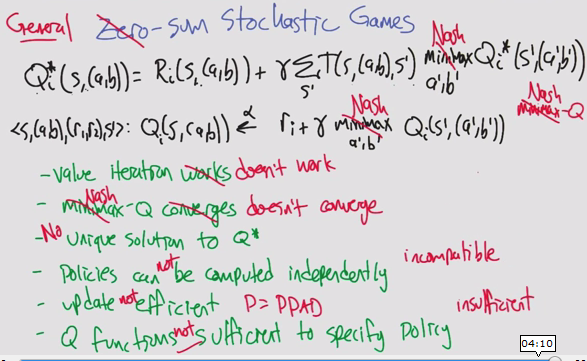 General Zero-sum Stochastic Games
Nash
Qi*(s,(a,b)) = Ri(s,(a,b)) + γ Σs' T(s,(a,b),s') minimax a',b' Qi*(s',(a',b'))
Nash Nash
<s,(a,b),(r1,r2),s'>: Qi(s,(a,b)) ←α ri + γ minimax a',b' Qi(s',(a',b')) minimax-Q
- value iteration works doesn't work
Nash
- minimax-Q converges doesn't converge
- No unique solution to Q*
- Policies can not be computed independently incompatible
- update not efficient P = PPAD insufficient
- Q functions not sufficient to specify policy
04:10